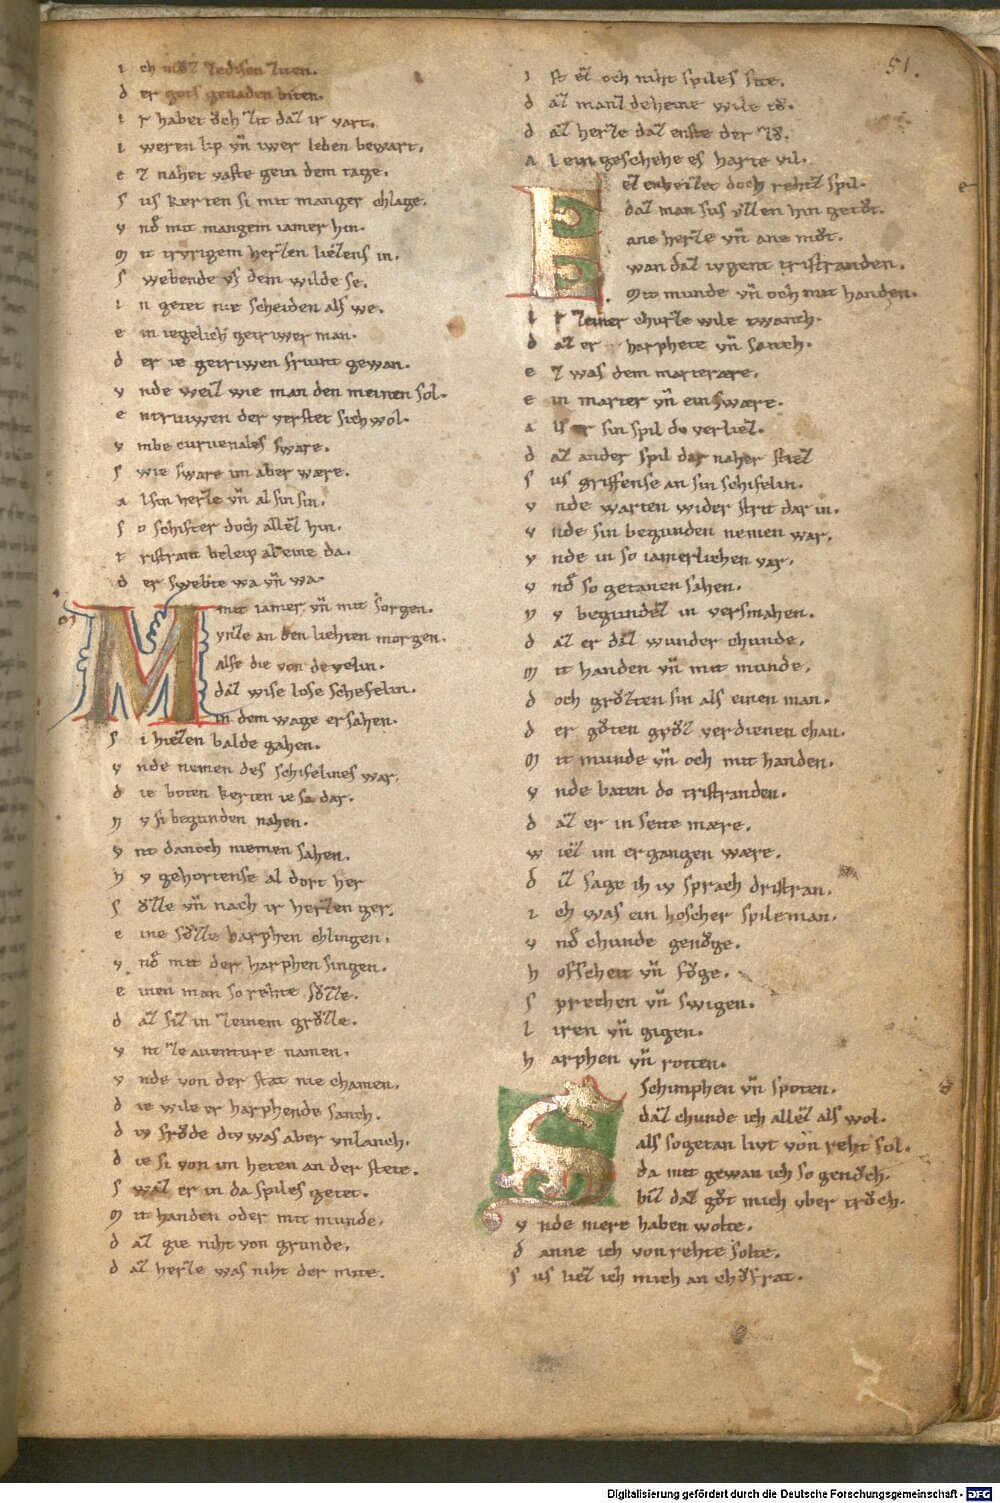 i ch mv̊z zedisen ziten.
d er gots genaden biten.
i r habet ŏch zit daz ir vart.
i weren lip vn̄ iwer leben bewart.
e z nahet vaste gein dem tage.
s us kerten si mit manger chlage.
v nd̄ mit mangem iamer hin.
m it trvrigem herzen liezens in.
s webende vf dem wilde se.
i n getet nie scheiden als we.
e in iegelich getriwer man.
d er ie getriwen friunt gewan.
v nde weiz wie man den meinen sol.
e ntriuwen der verstet sich wol.
v mbe curvenales sware.
s wie sware im aber wære.
a l sin herze vn̄ al sin sin.
s o schifter doch allez hin.
t ristrant beleip aleine da.
d er swebte wa vn̄ wa.
M mit iamer vn̄ mit sorgen.
vnze an den liehten morgen.
alse die von develin.
daz wise lose schefelin.
in dem wage ersahen.
s i hiezen balde gahen.
v nde nemen des schifelines war.
d ie boten kerten ie sa dar.
n v si begunden nahen.
v nt dannoch niemen sahen.
n v gehortense al dort her
s v̊ze vn̄ nach ir herzen ger.
e ine sv̊ze harphen chlingen.
v nd̄ mit der harphen singen.
e inen man so rehte sv̊ze.
d az siz in zeinem grv̊ze.
v nt ze aventure namen.
v nde von der stat nie chamen.
d ie wile er harphende sanch.
d iv frŏde div was aber vnlanch.
d ie si von im heten an der stete.
s waz er in da spiles getet.
m it handen oder mit munde.
d az gie niht von grunde.
d az herze was niht der mite.
51.
i st ez och niht spiles site.
d az manz deheine wile tv̊.
d az herze daz enste der zv̊.
a lein geschehe es harte vil.
E ez enheizet doch rehtiz spil.
daz man sus v̊zen hin getv̊t.
ane herze vn̄ ane mv̊t.
wan daz ivgent tristranden.
mit munde vn̄ och mit handen.
i r zeiner churze wile twanch.
d az er harphete vn̄ sanch.
e z was dem marterære.
e in marter vn̄ ein swære.
a ls er sin spil do verliez.
d az ander spil dar naher stiez
s us griffense an sin schifelin.
v nde warten wider strit dar in.
v nde sin begunden nemen war.
v nde in so iamerlichen var.
v nd̄ so getanen sahen.
n v begundez in versmahen.
d az er daz wunder chunde.
m it handen vn̄ mit munde.
d och grv̊zten sin als einen man.
d er gv̊ten grv̊z verdienen chan.
m it munde vn̄ och mit handen.
v nde baten do tristranden.
d az er in seite mære.
w iez im ergangen wære.
d iz sage ih iv sprach dristran.
i ch was ein hofscher spileman.
v nd̄ chunde genv̊ge.
h ofscheit vn̄ fv̊ge.
s prechen vn̄ swigen.
l iren vn̄ gigen.
h arphen vn̄ rotten.
S schimphen vn̄ spoten.
daz chunde ich allez als wol.
als sogetan livt von reht sol.
da mit gewan ich so genv̊ch.
biz daz gv̊t mich vber trv̊ch.
v nde mere haben wolte.
d anne ich von rehte solte.
s us liez ich mich an chŏfrat.
Digitalisierung gefördert durch die Deutsche Forschungsgemeinschaft - DFG